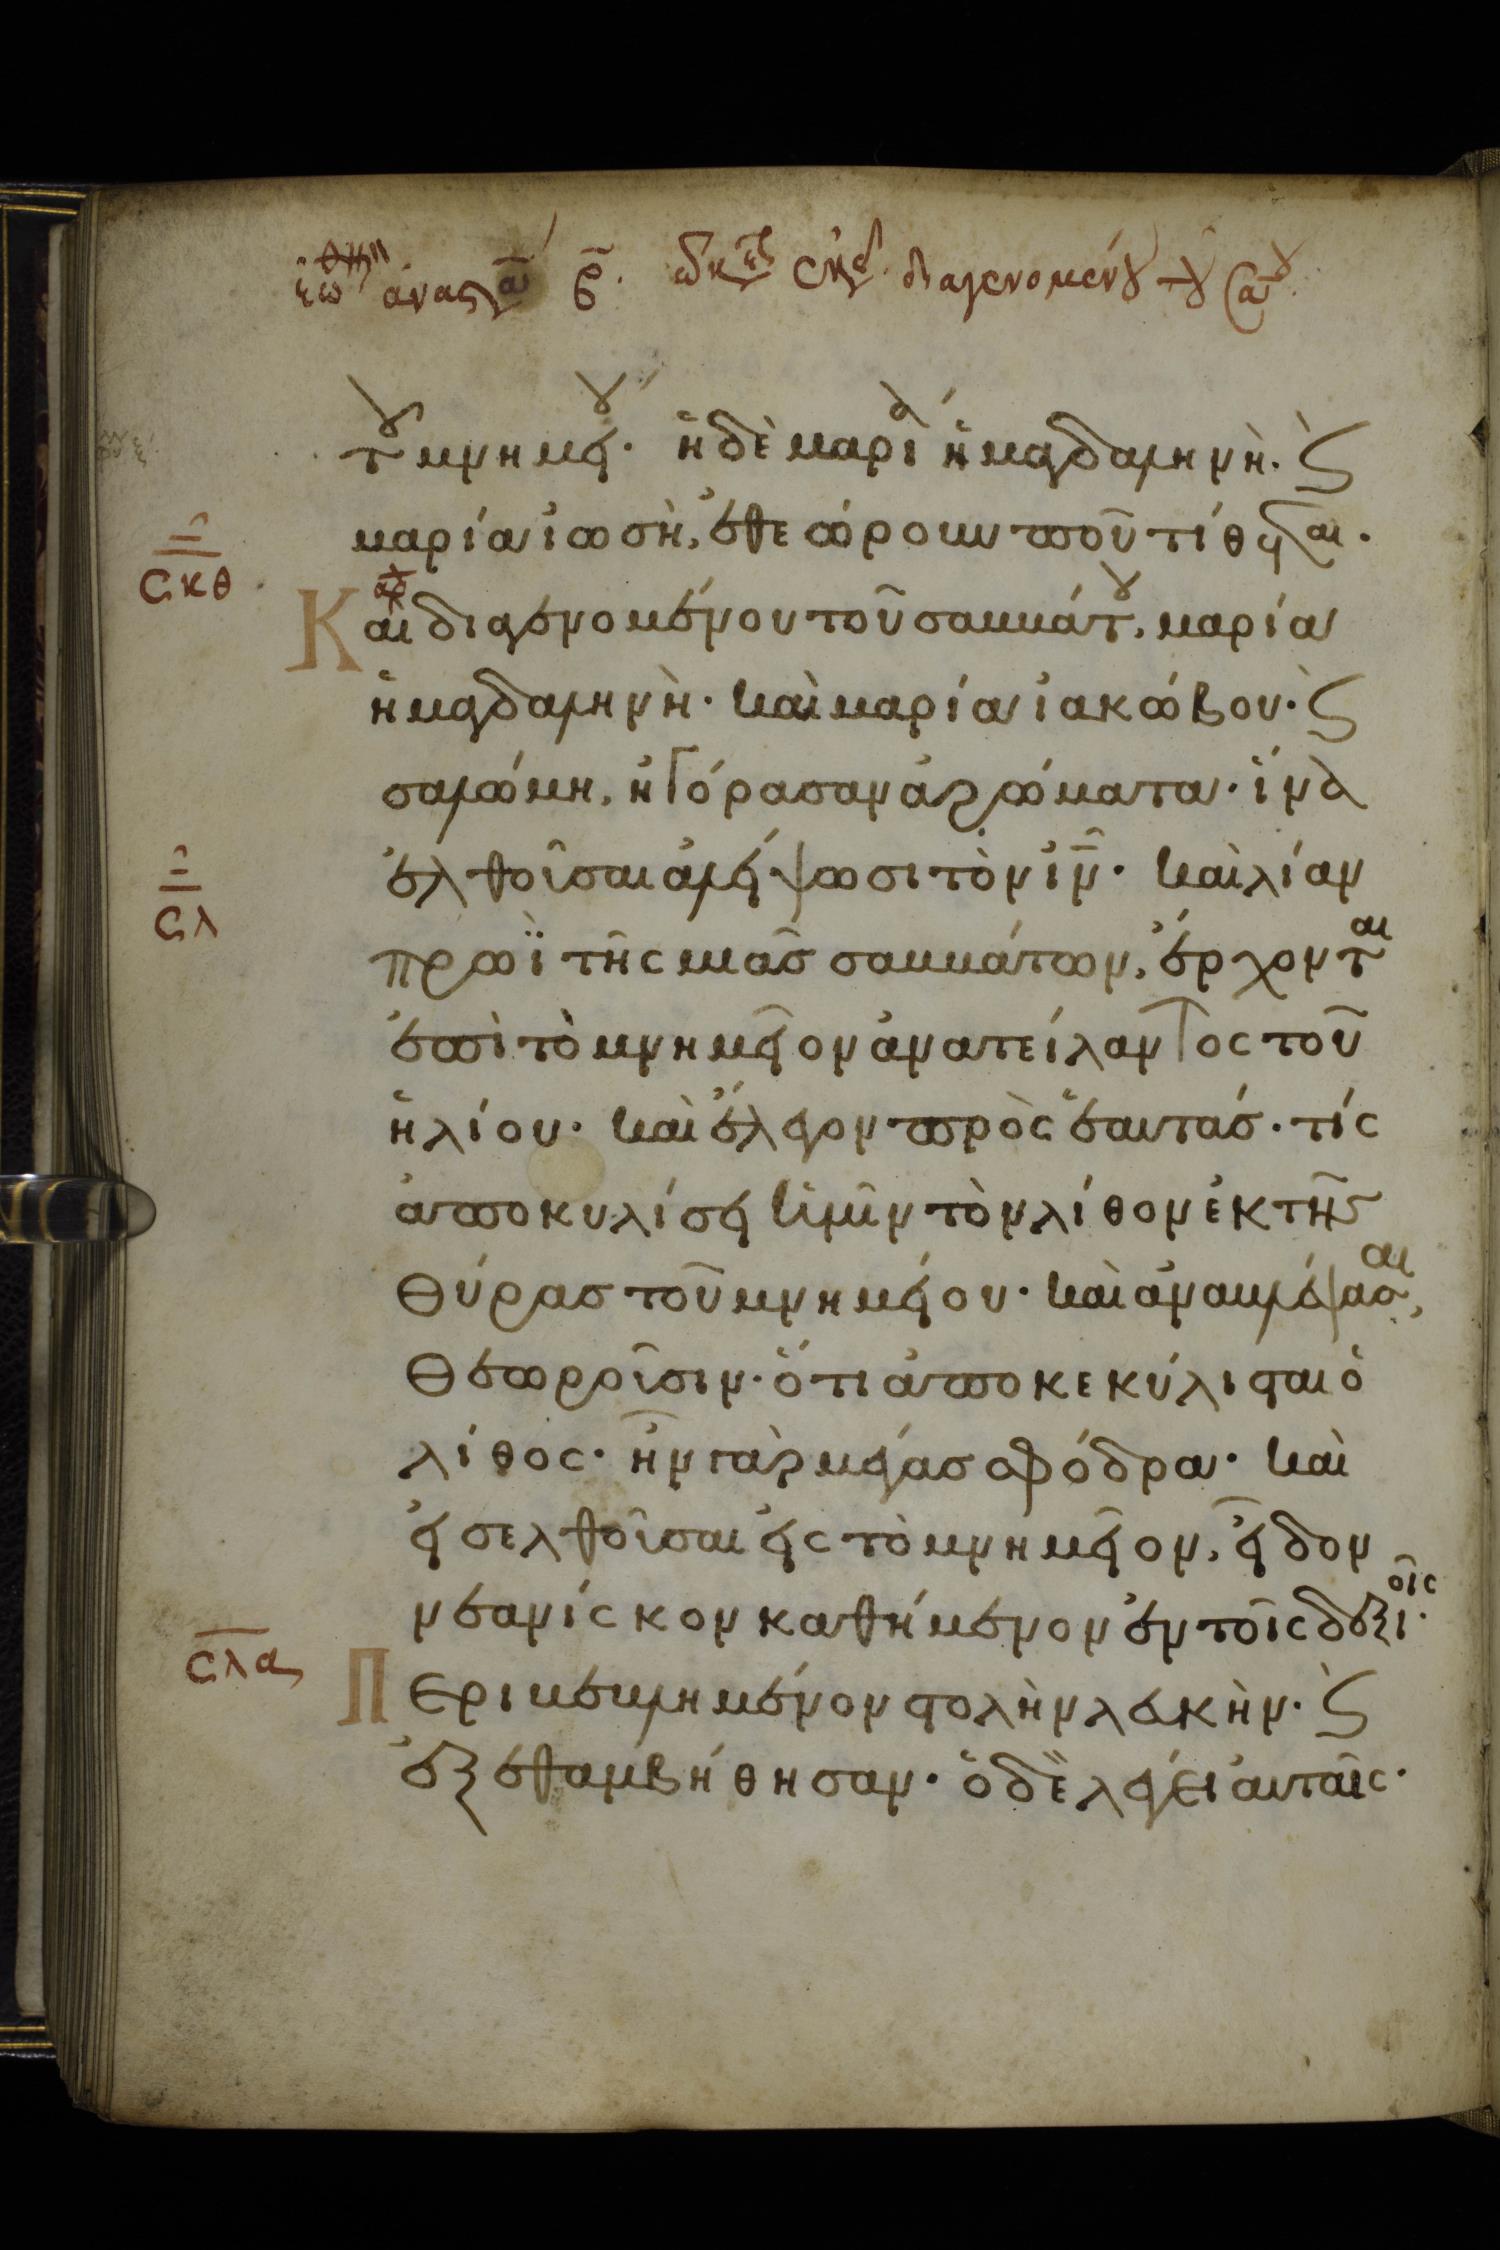 διαγενομένου του σα
του μνημείου. ἡ δὲ μαρία ἡ μαγδαληνὴ. ϗ
μαρία ἰωσὴ, ἐθεώρουν ποῦ τίθεται.
ϲκθ
Καὶ διαγενομένου του σαββάτου, μαρία
ἡ μαγδαληνὴ. καὶ μαρία ἰακώβου. ϗ
σαλώμη, ἠγόρασαν ἀρώματα. ἵνα
ϲλ
ἐλθοῦσαι ἀλείψωσι τὸν ἰν̅. καὶ λίαν
πρωῒ τῆς μιᾶς σαββάτων, ἔρχονται
ἐπὶ τὸ μνημεῖον ἀνατείλαντος τοῦ
ἡλίου. καὶ ἔλεγον πρὸς ἑαυτάς. τίς
ἀποκυλίσει ἡμῖν τὸν λίθον ἐκ τῆς
θύρας τοῦ μνημείου. καὶ ἀναβλέψασαι,
θεωροῦσιν. ὅτι ἀποκεκύλισται ὁ
λίθος. ἦν γὰρ μέγας σφόδρα. καὶ
εἰσελθοῦσαι εἰς τὸ μνημεῖον, εἶδον
νεανίσκον καθήμενον ἐν τοῖς δεξιοῖς.
ϲλα
Περιβεβλημένον στολὴν λευκὴν. ϗ
ἐξεθαμβήθησαν. ὁ δὲ λέγει αὐταῖς.